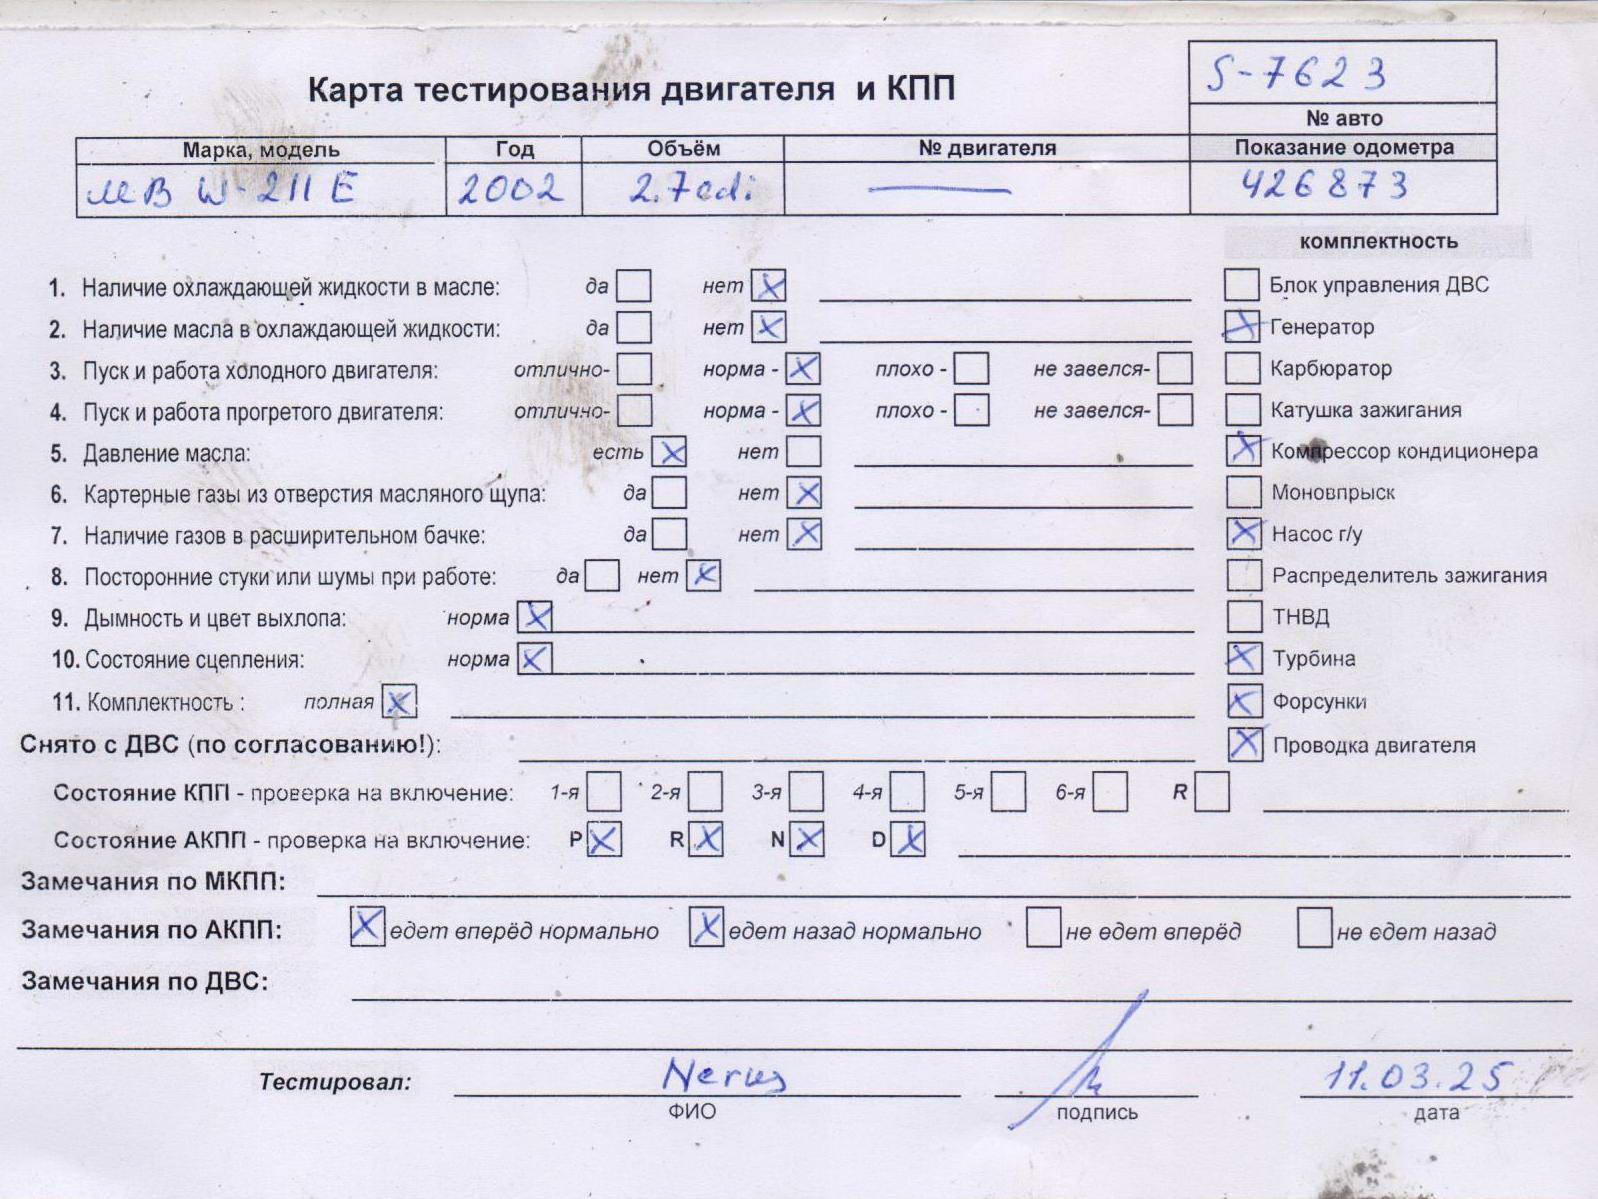 S-7623
Карта тестирования двигателя и КПП
№ авто
Марка, модель Год Объём № двигателя Показание одометра
MB W-211 E 2002 2.7cdi — 426873
комплектность
1. Наличие охлаждающей жидкости в масле: да нет X Блок управления ДВС
2. Наличие масла в охлаждающей жидкости: да нет X X Генератор
3. Пуск и работа холодного двигателя: отлично- норма - X плохо - не завелся- Карбюратор
4. Пуск и работа прогретого двигателя: отлично- норма - X плохо - не завелся- Катушка зажигания
5. Давление масла: есть X нет X Компрессор кондиционера
6. Картерные газы из отверстия масляного щупа: да нет X Моновпрыск
7. Наличие газов в расширительном бачке: да нет X X Насос г/у
8. Посторонние стуки или шумы при работе: да нет X Распределитель зажигания
9. Дымность и цвет выхлопа: норма X ТНВД
10. Состояние сцепления: норма X X Турбина
11. Комплектность : полная X X Форсунки
Снято с ДВС (по согласованию!): X Проводка двигателя
Состояние КПП - проверка на включение: 1-я 2-я 3-я 4-я 5-я 6-я R
Состояние АКПП - проверка на включение: P X R X N X D X
Замечания по МКПП:
Замечания по АКПП: X едет вперёд нормально X едет назад нормально не едет вперёд не едет назад
Замечания по ДВС:
Тестировал: 11.03.25
ФИО подпись дата